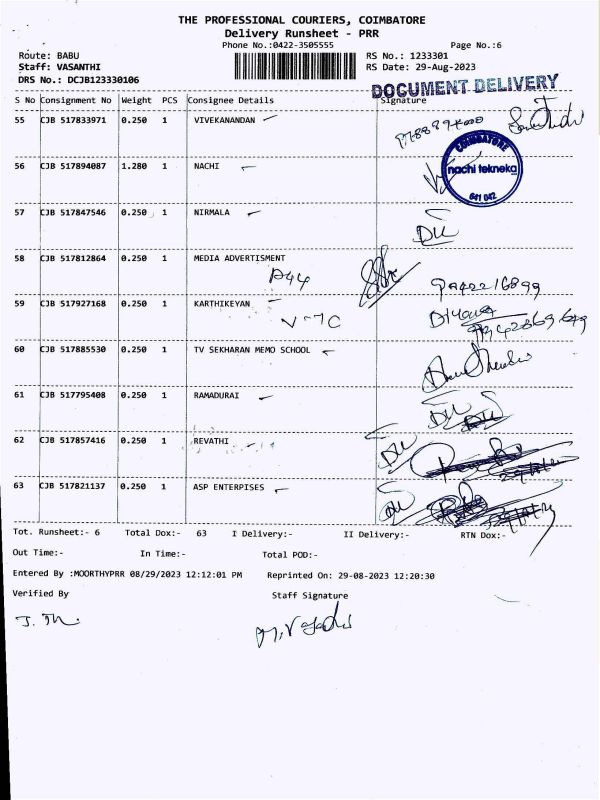 THE PROFESSIONAL COURIERS, COIMBATORE
Delivery Runsheet - PRR
Phone No.:0422-3505555 Page No.:6
Route: BABU RS No.: 1233301
Staff: VASANTHI RS Date: 29-Aug-2023
DRS No.: DCJB123330106
DOCUMENT DELIVERY
S No Consignment No Weight PCS Consignee Details Signature
55 CJB 517833971 0.250 1 VIVEKANANDAN
COIMBATORE
56 CJB 517894087 1.280 1 NACHI
nachi tekneka
641 042
57 CJB 517847546 0.250 1 NIRMALA
DU
58 CJB 517812864 0.250 1 MEDIA ADVERTISMENT
P44
59 CJB 517927168 0.250 1 KARTHIKEYAN
60 CJB 517885530 0.250 1 TV SEKHARAN MEMO SCHOOL
61 CJB 517795408 0.250 1 RAMADURAI
DU DU
62 CJB 517857416 0.250 1 REVATHI
DU
63 CJB 517821137 0.250 1 ASP ENTERPISES
DU
Tot. Runsheet:- 6 Total Dox:- 63 I Delivery:- II Delivery:- RTN Dox:-
Out Time:- In Time:- Total POD:-
Entered By :MOORTHYPRR 08/29/2023 12:12:01 PM Reprinted On: 29-08-2023 12:20:30
Verified By Staff Signature